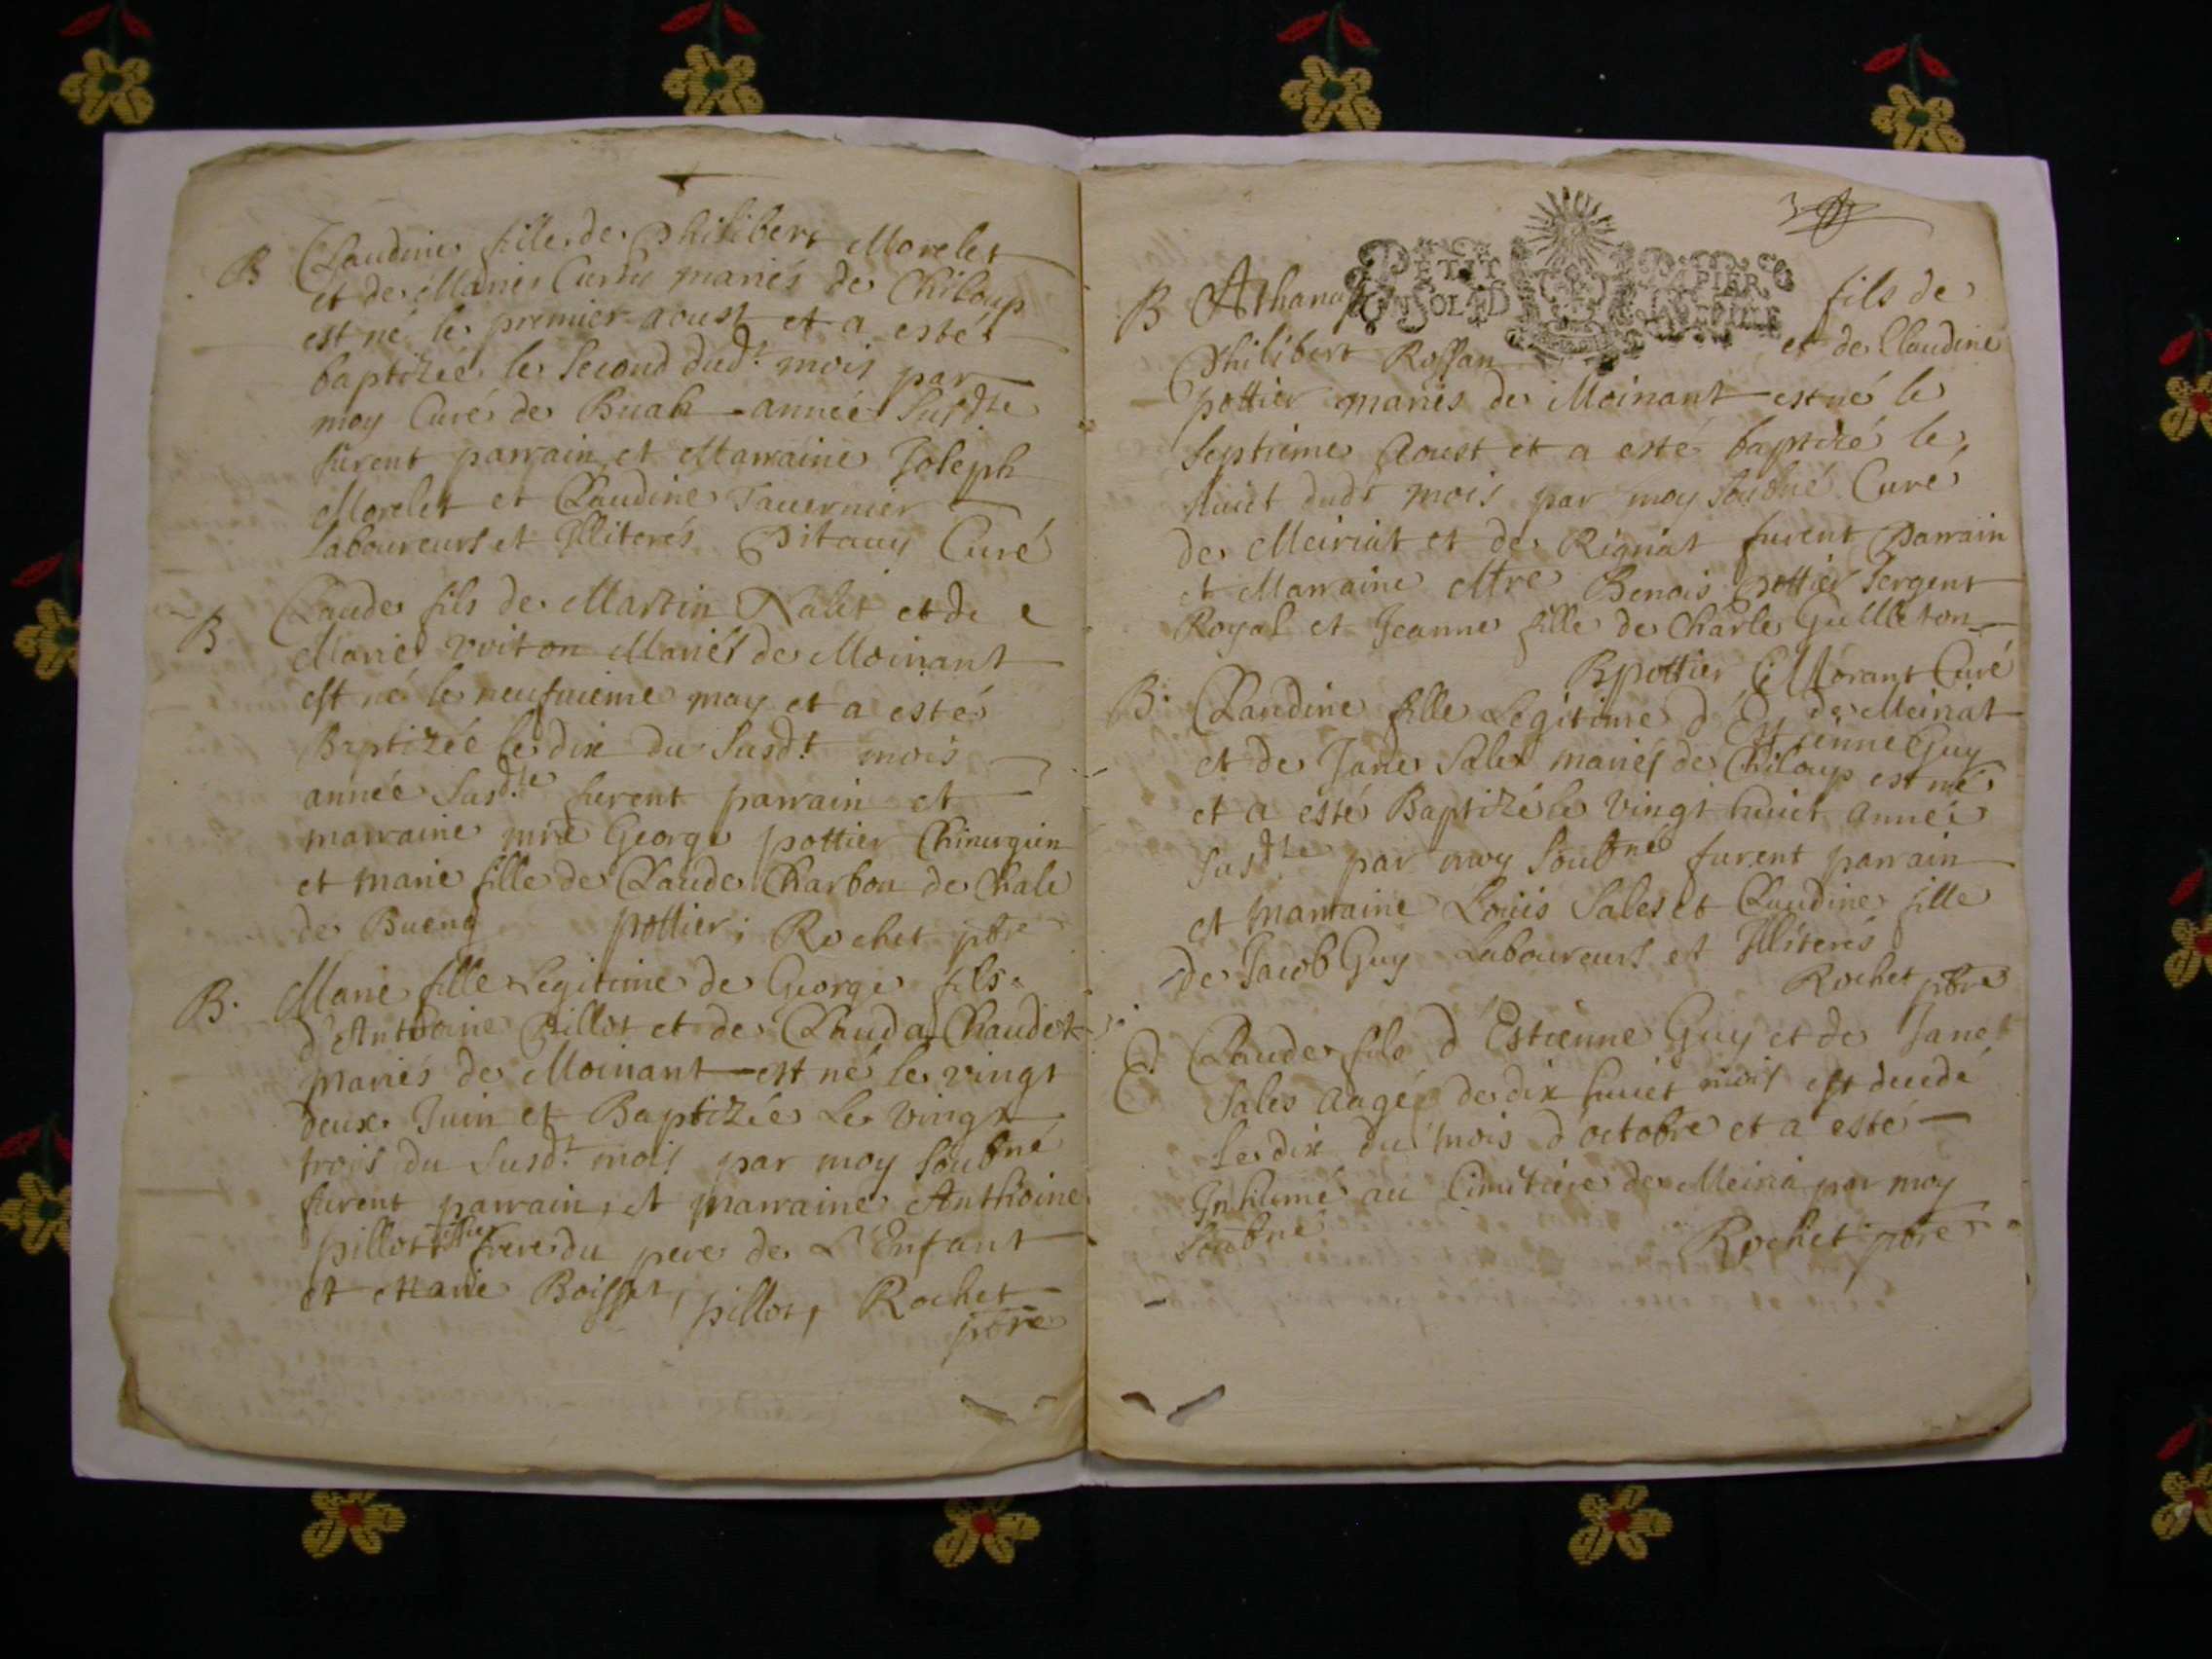 B Claudine fille de Philibert Morelet
et de Marie Curny mariés de Chiloup
est né le premier aoust et a esté
baptizée le second dud.t mois par
moy Curé de Buah année susd.te
furent parrain et Marraine Joseph
Morelet et Claudine Tavernier
laboureurs et Illiterés Pitauy Curé
B Claude fils de Martin Nalet et de
Marie voiton Mariés de Moinant
est né le neufuieme may et a esté
Baptizée le dix du susd.t mois
année susd.te furent parrain et
marraine mre George pottier Chirurgien
et marie fille de Claude Charbon de Chale
de Bueng pottier; Rochet pbre
B. Marie fille Legitime de George fils
d'Anthoine Pillot et de Clauda Chaudet
mariés de Moinant est né le vingt
deux Juin et Baptizée Le vingt
trois du susd.t mois par moy soubné
furent parrain, et marraine Anthoine
pillot frere du pere de L'Enfant
et Marie Boisset, pillot, Rochet
pbre
3
PETIT PAPIER
B Athana fils de
Philibert Rossan et de Claudine
pottier mariés de Moinant est né le
septieme Aoust et a esté baptizé le
huict dudt mois par moy soubné Curé
de Meiriat et de Rignat furent Parrain
et Marraine Mtre Benois pottier sergent
Royal et Jeanne fille de Charle Guilleton
Bpottier CMorant Curé
de Meiriat
B. Claudine fille Legitime d'Estienne Guy
et de Jane Sales mariés de Chiloup est né
et a esté Baptizé le vingt huict année
susd.te par moy soubné furent parrain
et marraine Louis Sales et Claudine fille
de Jacob Guy Laboureurs et Illiterés
Rochet pbre
E. Claude fils d'Estienne Guy et de Jane
Sales aagé de dix huict mois est decedé
le dix du mois d'octobre et a esté
Inhumé au Cimetiere de Meiria par moy
soubné Rochet pbre